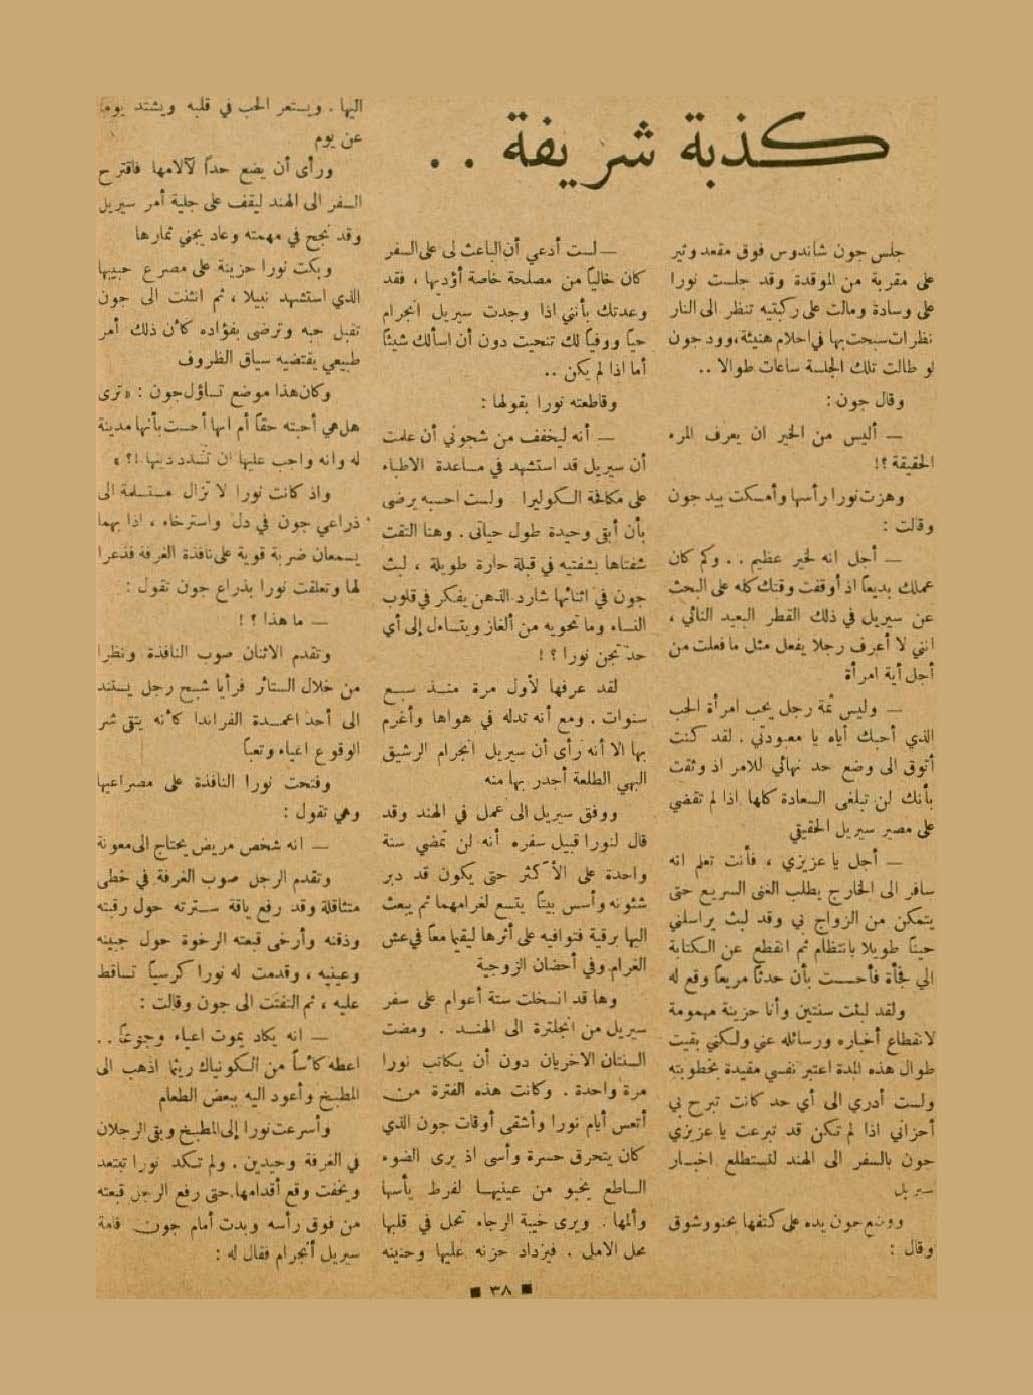 كذبة شريفة . .
جلس جون شاندوس فوق مقعد وثير
على مقربة من الموقدة وقد جلست نورا
على وسادة ومالت على ركبتيه تنظر الى النار
نظرات سبحت بها في احلام هنيئة، وود جون
لو طالت تلك الجلسة ساعات طوالا . .
وقال جون :
— أليس من الخير ان يعرف المرء
الحقيقة ؟!
وهزت نورا رأسها وأمسكت بيد جون
وقالت :
— أجل انه لخير عظيم . . وكم كان
عملك بديعاً اذ أوقفت وقتك كله على البحث
عن سيريل في ذلك القطر البعيد النائي ،
انني لا أعرف رجلا يفعل مثل ما فعلت من
أجل أية امرأة
— وليس ثمة رجل يحب امرأة الحب
الذي أحبك أياه يا معبودتي . لقد كنت
أتوق الى وضع حد نهائي للامر اذ وثقت
بأنك لن تبلغي السعادة كلها اذا لم تقضي
على مصير سيريل الحقيقي
— أجل يا عزيزي ، فأنت تعلم انه
سافر الى الخارج يطلب الغنى السريع حتى
يتمكن من الزواج بي وقد لبث يراسلني
حيناً طويلا بانتظام ثم انقطع عن الكتابة
الي فجأة فأحست بأن حدثاً مريعاً وقع له
ولقد لبثت سنتين وأنا حزينة مهمومة
لانقطاع أخباره ورسائله عني ولكني بقيت
طوال هذه المدة اعتبر نفسي مقيدة بخطوبته
ولست أدري الى أي حد كانت تبرح بي
أحزاني اذا لم تكن قد تبرعت يا عزيزي
جون بالسفر الى الهند لتستطلع اخبار
سيريل
ووضع جون يده على كتفها بحنو وشوق
وقال :
— لست أدعي أن الباعث لى على السفر
كان خالياً من مصلحة خاصة أؤديها ، فقد
وعدتك بأنني اذا وجدت سيريل انجرام
حياً ووفياً لك تنحيت دون أن اسألك شيئاً
أما اذا لم يكن . .
وقاطعته نورا بقولها :
— أنه ليخفف من شجوني أن علمت
أن سيريل قد استشهد في مساعدة الاطباء
على مكافحة الكوليرا ولست احسبه يرضى
بأن أبقى وحيدة طول حياتى . وهنا التقت
شفتاها بشفتيه في قبلة حارة طويلة ، لبث
جون في اثنائها شارد الذهن يفكر في قلوب
النساء وما تحويه من ألغاز ويتساءل إلى أي
حد تجن نورا ؟ !
لقد عرفها لأول مرة منذ سبع
سنوات . ومع أنه تدله في هواها وأغرم
بها الا أنه رأى أن سيريل انجرام الرشيق
البهي الطلعة أجدر بها منه
ووفق سيريل الى عمل في الهند وقد
قال لنورا قبيل سفره أنه لن تمضي سنة
واحدة على الأكثر حتى يكون قد دبر
شئونه وأسس بيتاً يتسع لغرامهما ثم يبعث
اليها برقية فتوافيه على أثرها ليقيما معاً في عش
الغرام وفي أحضان الزوجية
وها قد انسلخت ستة أعوام على سفر
سيريل من انجلترة الى الهند . ومضت
السنتان الاخريان دون أن يكاتب نورا
مرة واحدة . وكانت هذه الفترة من
أتعس أيام نورا وأشقى أوقات جون الذي
كان يتحرق حسرة وأسى اذ يرى الضوء
الساطع يخبو من عينيها لفرط يأسها
وألمها . ويرى خيبة الرجاء تحل في قلبها
محل الامل . فيزداد حزنه عليها وحنينه
اليها . ويستعر الحب في قلبه ويشتد يوماً
عن يوم
ورأى أن يضع حداً لآلامها فاقترح
السفر الى الهند ليقف على جلية أمر سيريل
وقد نجح في مهمته وعاد يجني ثمارها
وبكت نورا حزينة على مصرع حبيبها
الذي استشهد نبيلا ، ثم انثنت الى جون
تقبل حبه وترضى بفؤاده كأن ذلك أمر
طبيعي يقتضيه سياق الظروف
وكان هذا موضع تساؤل جون : « ترى
هل هي أحبته حقاً أم انها أحست بأنها مدينة
له وانه واجب عليها ان تسدد دينها !؟ »
واذ كانت نورا لا تزال مستسلمة الى
ذراعي جون في دل واسترخاء ، اذا بهما
يسمعان ضربة قوية على نافذة الغرفة فذعرا
لها وتعلقت نورا بذراع جون تقول :
— ما هذا ؟ !
وتقدم الاثنان صوب النافذة ونظرا
من خلال الستائر فرأيا شبح رجل يستند
الى أحد اعمدة الفراندا كأنه يتقي شر
الوقوع اعياء وتعباً
وفتحت نورا النافذة على مصراعيها
وهي تقول :
— انه شخص مريض يحتاج الى معونة
وتقدم الرجل صوب الغرفة في خطى
متثاقلة وقد رفع ياقة سترته حول رقبته
وذقنه وأرخى قبعته الرخوة حول جبينه
وعينيه ، وقدمت له نورا كرسياً تساقط
عليه ، ثم التفتت الى جون وقالت :
— انه يكاد يموت اعياء وجوعاً . .
اعطه كأساً من الكونياك ريثما اذهب الى
المطبخ وأعود اليه ببعض الطعام
وأسرعت نورا إلى المطبخ وبقي الرجلان
في الغرفة وحيدين . ولم تكد نورا تبتعد
ويخفت وقع أقدامها حتى رفع الرجل قبعته
من فوق رأسه وبدت أمام جون قامة
سيريل أنجرام فقال له :
■ ٣٨ ■